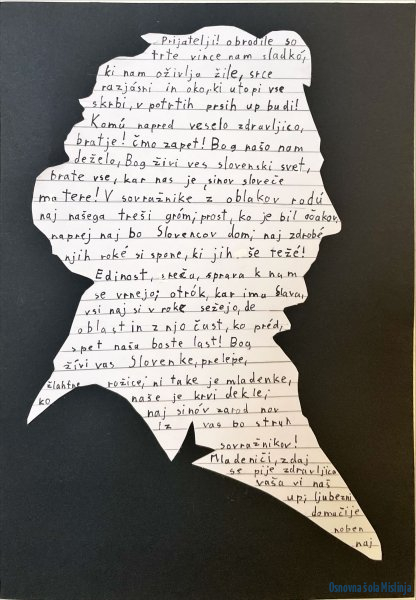 Prijatelji! obrodile so
trte vince nam sladkó,
ki nam oživlja žile, srce
razjásni in oko, ki utopi vse
skrbi, v potrtih prsih up budi!
Komú napred veselo zdravljico,
bratje! čmo zapet! Bog našo nam
deželo, Bog živi ves slovenski svet,
brate vse, kar nas je, sinov sloveče
matere! V sovražnike z oblakov rodú
naj našega treši gróm; prost, ko je bil očakov,
naprej naj bo Slovencov dom; naj zdrobé
njih roké si spone, ki jih še težé!
Edinost, sreča, sprava k nam
se vrnejo; otrók, kar ima Slava,
vsi naj si v roke sežejo, de
oblast in z njo čast, ko préd,
spet naša boste last! Bog
živi vas Slovenke, prelepe,
žlahtne rožice; ni take je mladenke,
ko naše je krvi dekle;
naj sinóv zarod nov
Iz vas bo struh
sovražnikov!
Mladeniči, zdaj
se pije zdravljica
vaša vi naš
up; ljubezni
domačije
noben
naj
Osnovna šola Mislinja